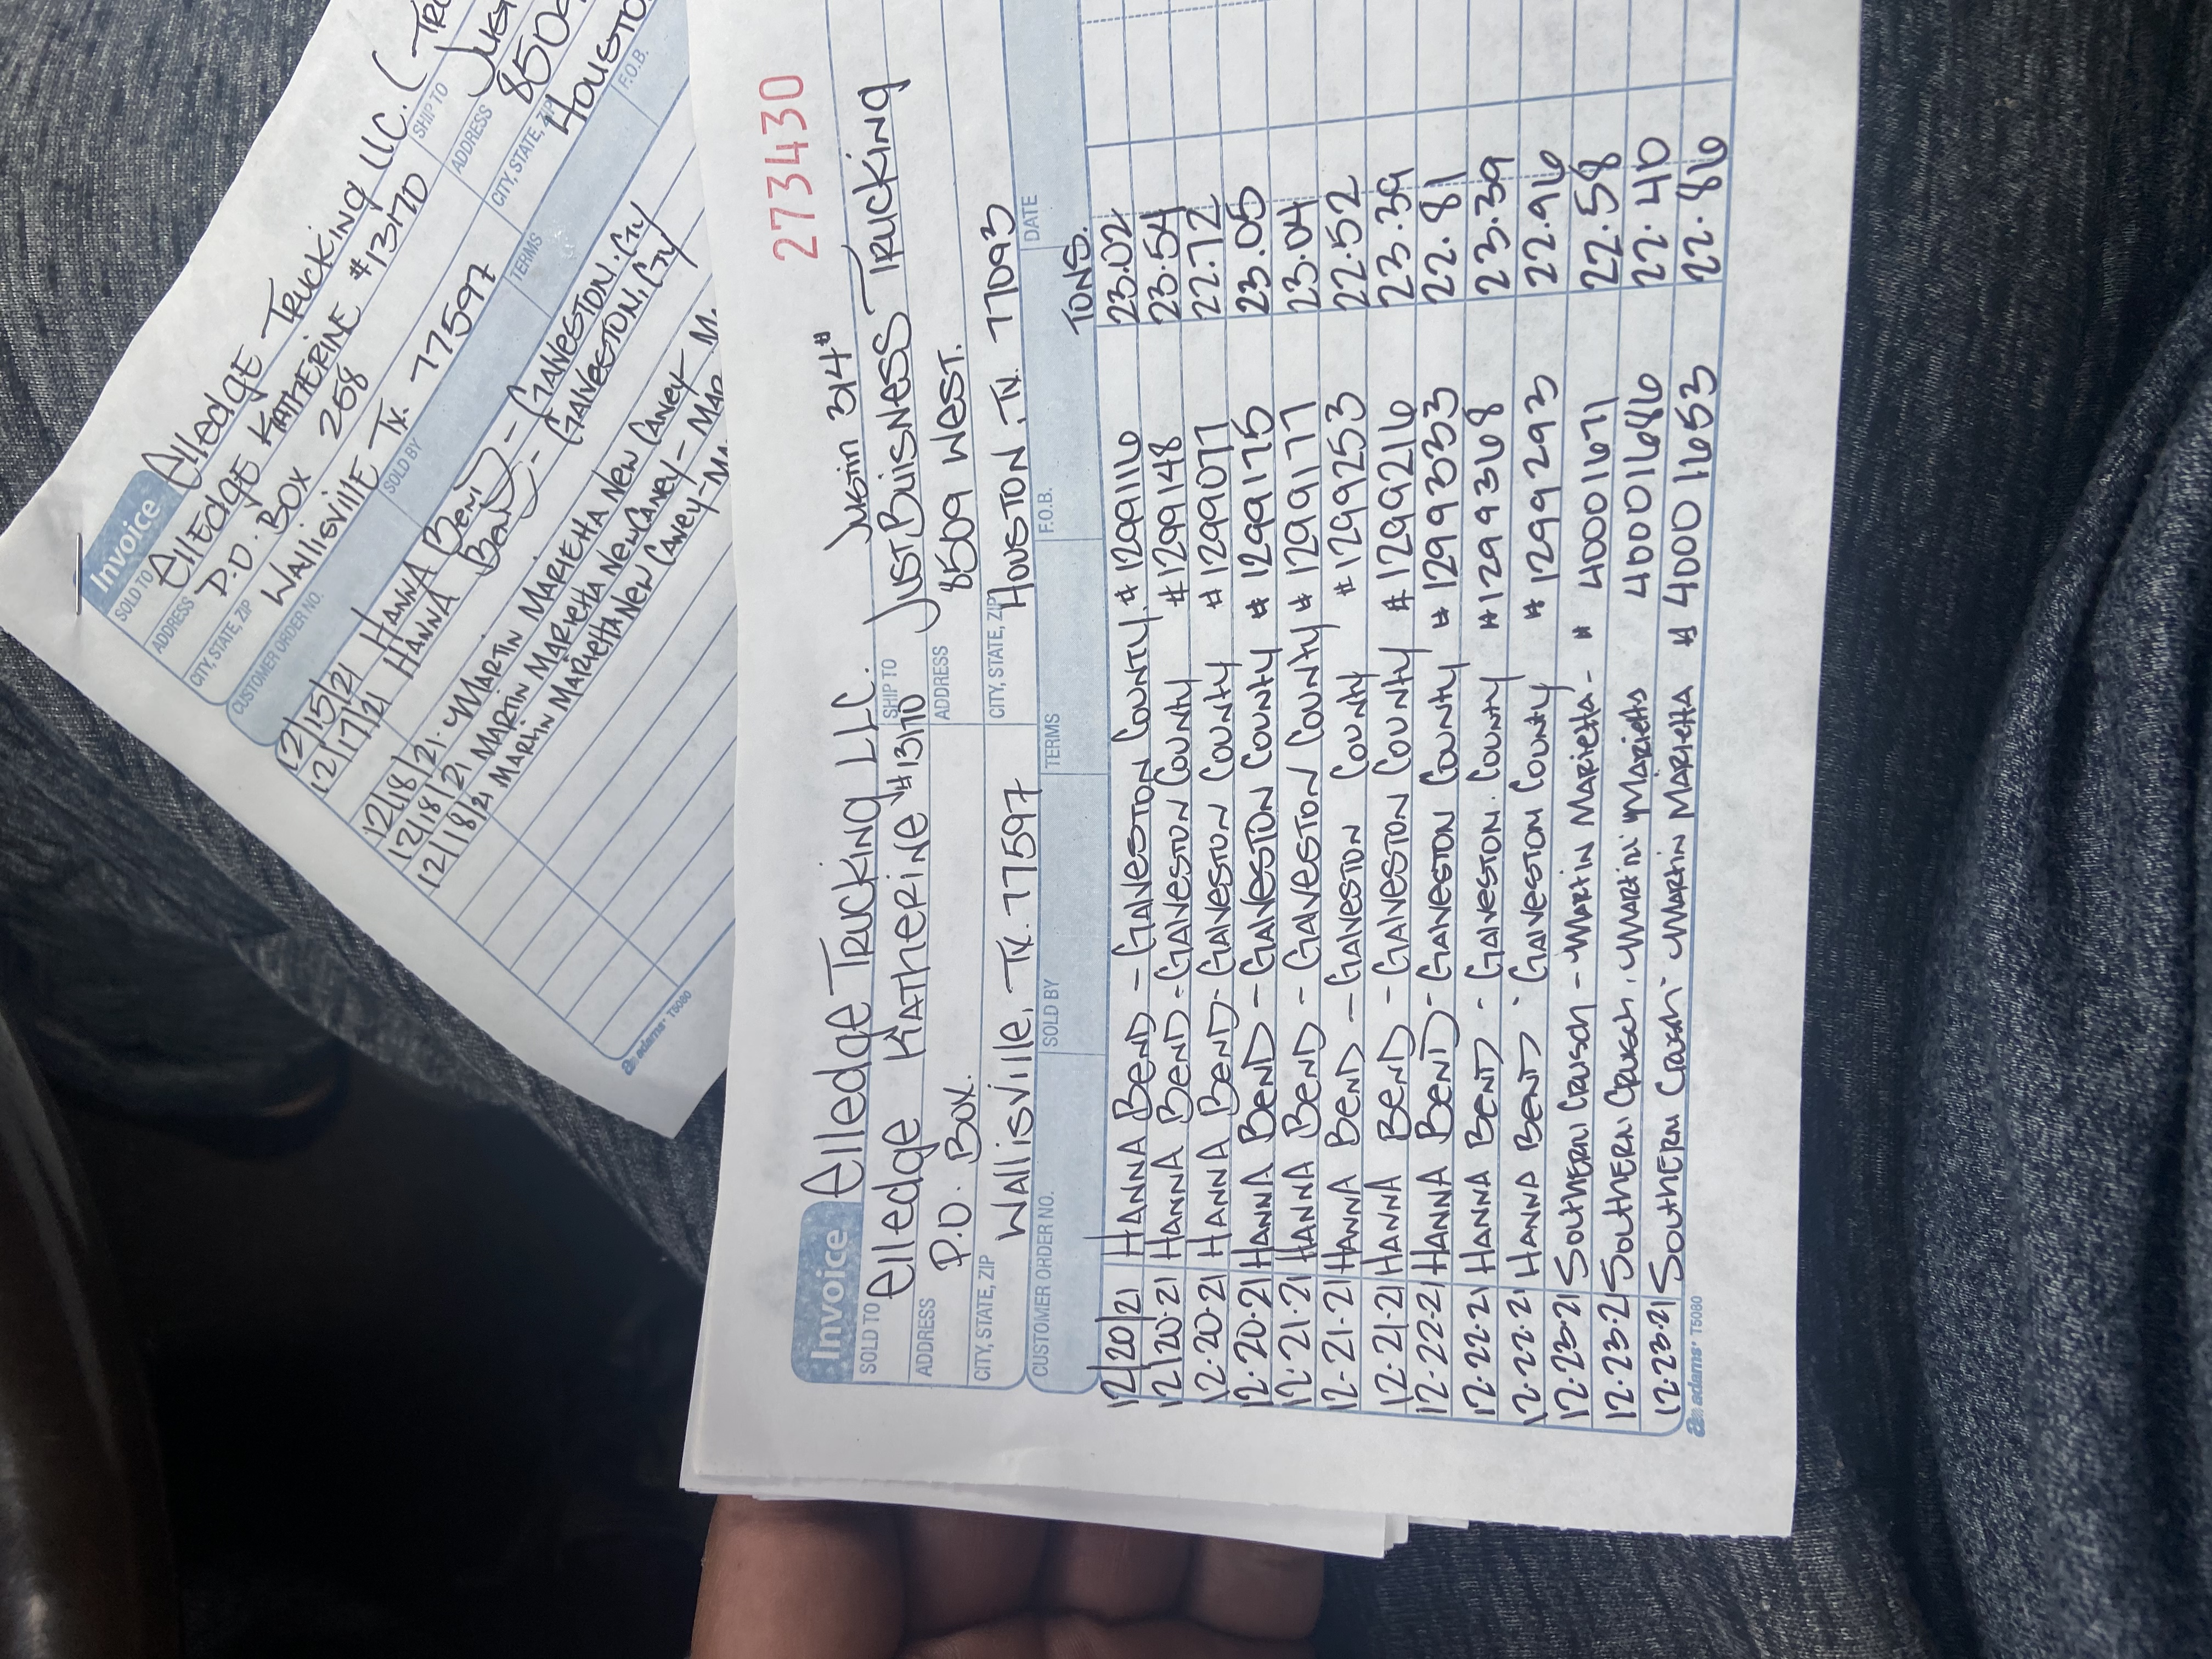 Invoice
Elledge Trucking LLC. (
SOLD TO
Elledge Katherine #13170
SHIP TO
ADDRESS
P.O. Box 258
ADDRESS
CITY, STATE, ZIP
Wallisville Tx. 77597
CITY, STATE, ZIP
CUSTOMER ORDER NO.
SOLD BY
TERMS
F.O.B.
12/15/21 HANNA BEND - GALVESTON. CTY
12/17/21 HANNA BEND - GALVESTON, CTY
12/18/21. MARTIN MARIETTA NEW CANEY - M
12/18/21 MARTIN MARIETTA NEW CANEY - MAR
12/18/21 MARTIN MARIETTA NEW CANEY - MA
adams® T5080
273430
Invoice
Elledge Trucking LLC. Justin 314#
SOLD TO
Elledge Katherine #13170
SHIP TO
Just Buisness Trucking
ADDRESS
P.O. Box.
ADDRESS
8509 West.
CITY, STATE, ZIP
Wallisville, Tx. 77597
CITY, STATE, ZIP
Houston, Tx. 77093
CUSTOMER ORDER NO.
SOLD BY
TERMS
F.O.B.
DATE
TONS.
12/20/21 HANNA BEND - GALVESTON COUNTY. # 1299116 23.02
12/20.21 HANNA BEND - GALVESTON COUNTY # 1299148 23.54
12.20.21 HANNA BEND - GALVESTON COUNTY # 1299077 22.72
12.20.21 HANNA BEND - GALVESTON COUNTY # 1299175 23.05
12.21.21 HANNA BEND - GALVESTON COUNTY # 1299177 23.04
12.21.21 HANNA BEND - GALVESTON COUNTY # 1299253 22.52
12.21.21 HANNA BEND - GALVESTON COUNTY # 1299216 23.39
12.22.21 HANNA BEND - GALVESTON COUNTY # 1299333 22.81
12.22.21 HANNA BEND - GALVESTON. COUNTY # 1299368 23.39
12.22.21 HANNA BEND - GALVESTON COUNTY # 1299293 22.96
12.23.21 SOUTHERN CRUSCH - MARTIN MARIETTA - # 40001671 22.58
12.23.21 SOUTHERN CRUSCH. MARTIN MARIETTA 40001686 22.40
12.23.21 SOUTHERN CRUSCH - MARTIN MARIETTA # 40001653 22.86
adams® T5080